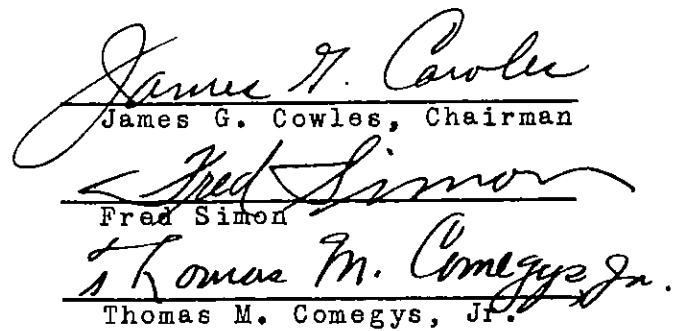 James G. Cowles
James G. Cowles, Chairman
Fred Simon
Fred Simon
Thomas M. Comegys, Jr.
Thomas M. Comegys, Jr.